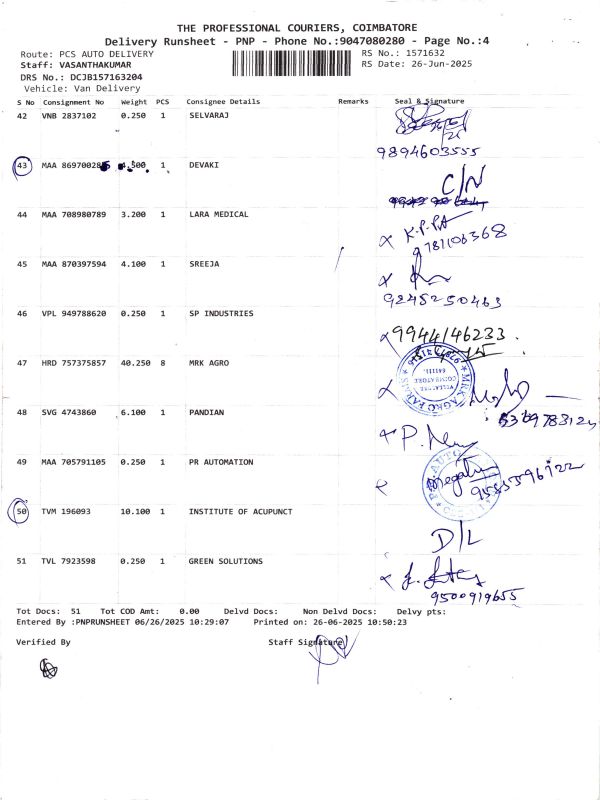 THE PROFESSIONAL COURIERS, COIMBATORE
Delivery Runsheet - PNP - Phone No.:9047080280 - Page No.:4
Route: PCS AUTO DELIVERY RS No.: 1571632
Staff: VASANTHAKUMAR RS Date: 26-Jun-2025
DRS No.: DCJB157163204
Vehicle: Van Delivery
S No Consignment No Weight PCS Consignee Details Remarks Seal & Signature
42 VNB 2837102 0.250 1 SELVARAJ
9894603555
43 MAA 869700285 4.500 1 DEVAKI
C/N
44 MAA 708980789 3.200 1 LARA MEDICAL
x K.P.PA
9781106368
45 MAA 870397594 4.100 1 SREEJA
x
9245250463
46 VPL 949788620 0.250 1 SP INDUSTRIES
x 9944146233.
47 HRD 757375857 40.250 8 MRK AGRO
x
MRK AGRO FARMS
COIMBATORE
48 SVG 4743860 6.100 1 PANDIAN
x P.
49 MAA 705791105 0.250 1 PR AUTOMATION
50 TVM 196093 10.100 1 INSTITUTE OF ACUPUNCT
D/L
51 TVL 7923598 0.250 1 GREEN SOLUTIONS
x
9500919655
Tot Docs: 51 Tot COD Amt: 0.00 Delvd Docs: Non Delvd Docs: Delvy pts:
Entered By :PNPRUNSHEET 06/26/2025 10:29:07 Printed on: 26-06-2025 10:50:23
Verified By Staff Signature